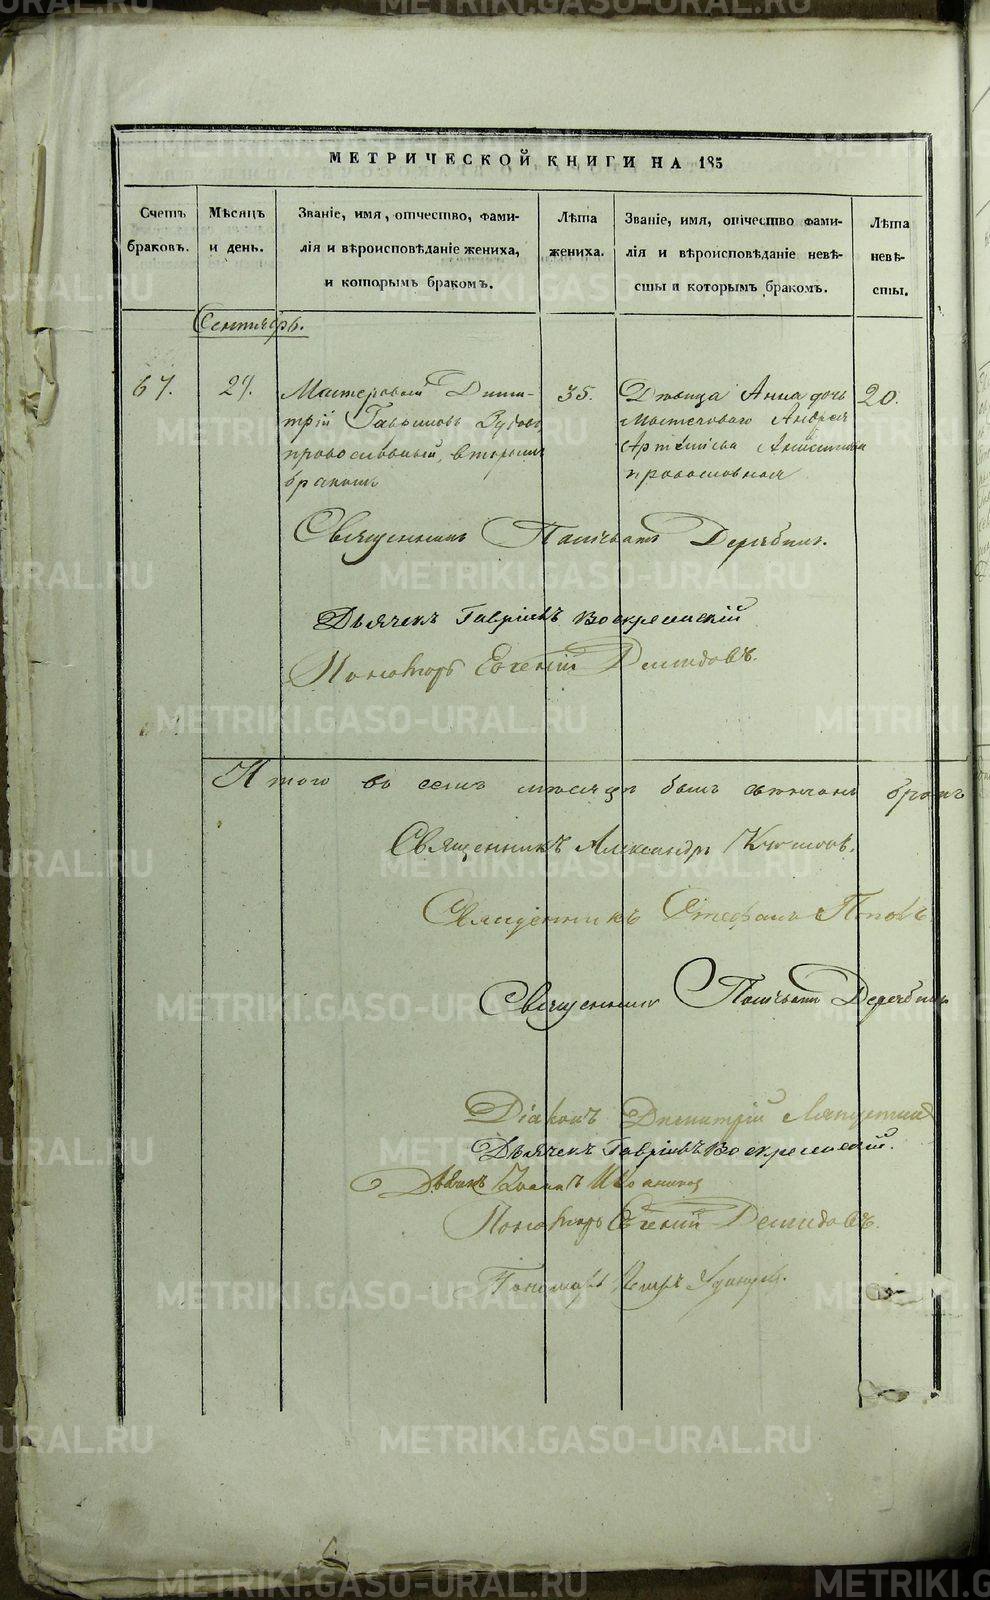 МЕТРИЧЕСКОЙ КНИГИ НА 185
Счетъ браковъ.
Мѣсяцъ и день.
Званіе, имя, отчество, фами-
лія и вѣроисповѣданіе жениха,
и которымъ бракомъ.
Лѣта жениха.
Званіе, имя, отчество фами-
лія и вѣроисповѣданіе невѣ-
сты и которымъ бракомъ.
Лѣта невѣ-
сты.
Сентябрь.
67.
27.
Мастеровый Дими-
трій Гавриловъ
православный, вторымъ
бракомъ
35.
Дѣвица Анна дочь
Мастероваго Андрея
православная
20.
Священникъ
Дьячекъ Гавріилъ Воскресенскій
Пономарь Евгеній Демидовъ.
Итого въ семъ мѣсяцѣ былъ вѣнчанъ бракъ
Священникъ Александръ
Священникъ Стефанъ Поповъ
Священникъ
Діаконъ Димитрій
Дьячекъ Гавріилъ Воскресенскій.
Пономарь Евгеній Демидовъ.
Пономарь
METRIKI.GASO-URAL.RU